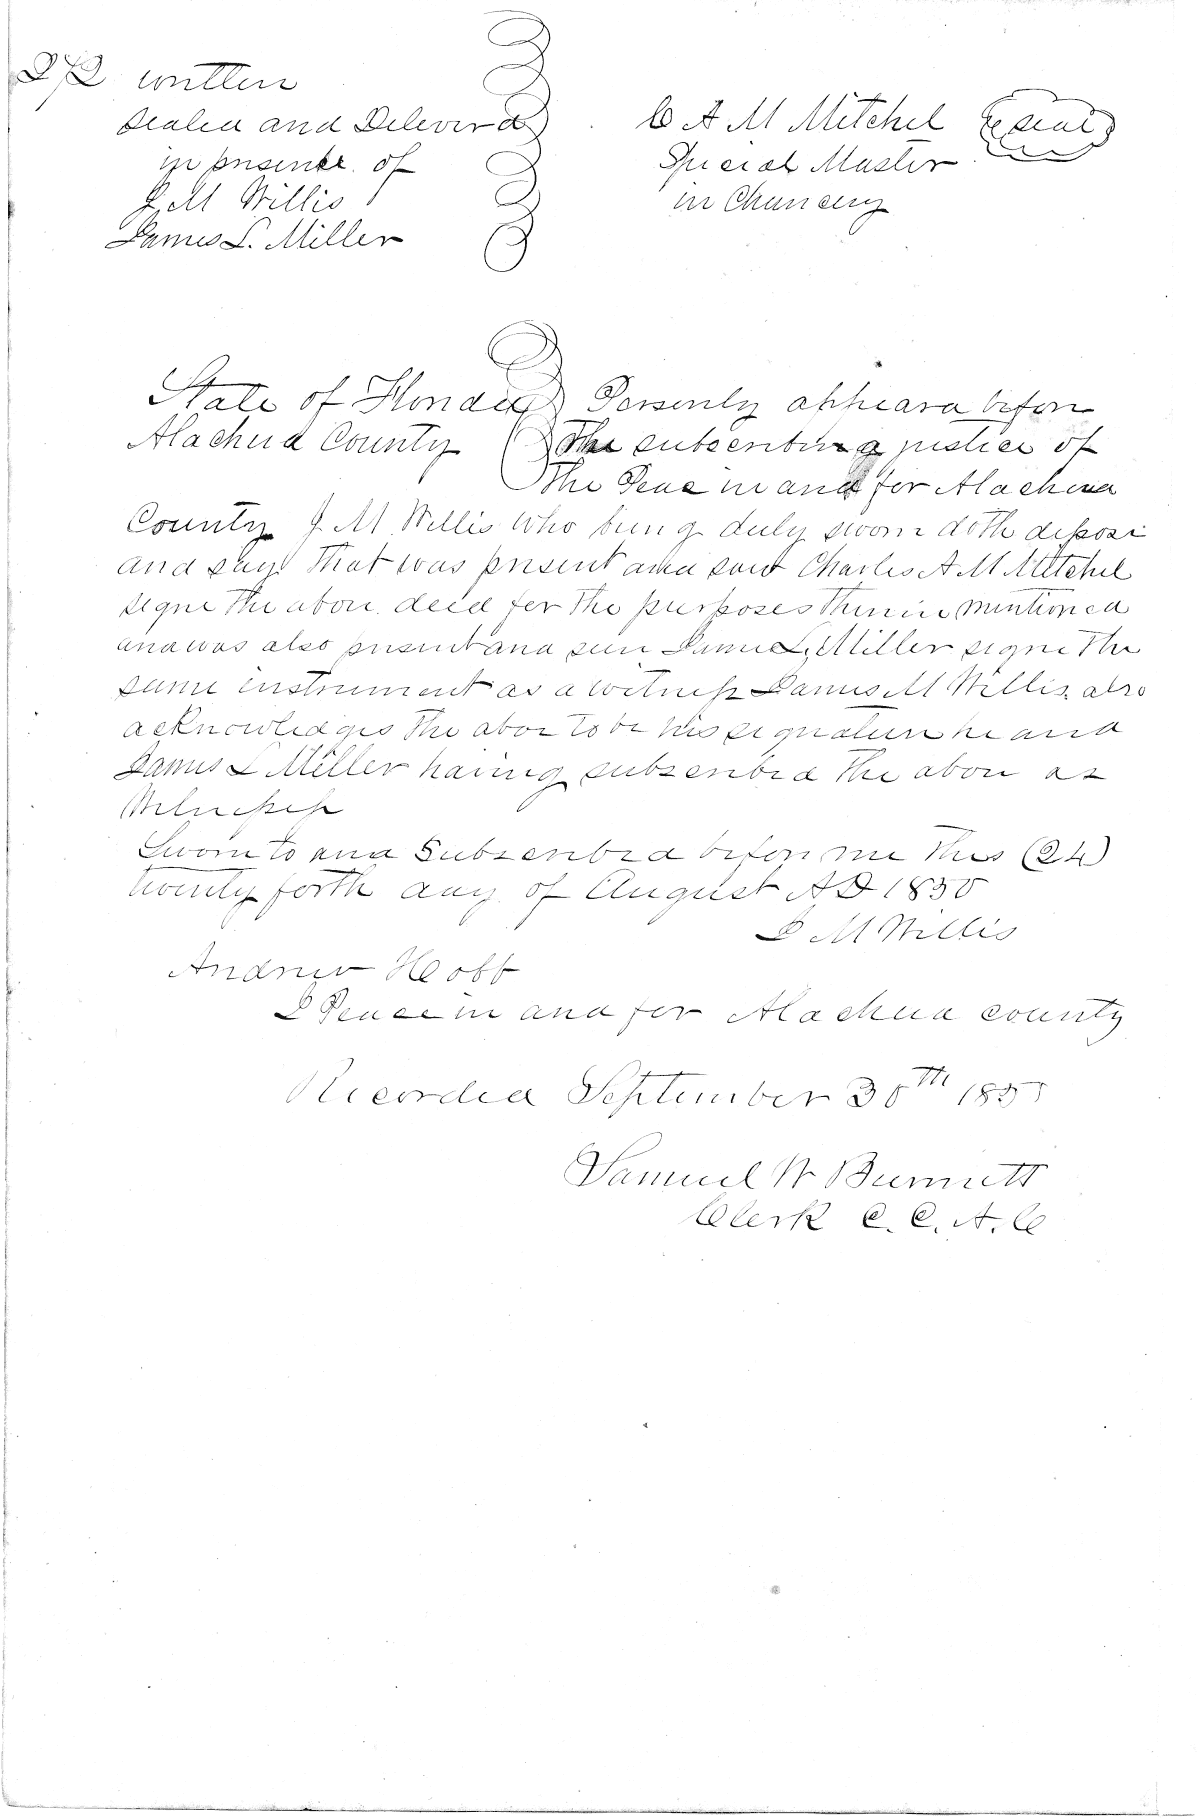 272 written
Sealed and Deleverd
in presence of
J. M Willis
James L. Miller
C A M Mitchel
Special Master
in Chancery
seal
State of Florida
Alachua County
Personly appeard before
The subscribing justice of
The Peace in and for Alachua
County J. M Willis who being duly sworn doth depose
and say That was present and saw Charles A. M Mitchel
signe The above deed for The purposes Therein mentioned
and was also present and seen James L. Miller signe The
same instrument as a witness James M Willis also
acknowledges The above to be his signature he and
James L Miller having subscribed The above as
Witnesses
Sworn to and Subscribed before me This (24)
twenty forth day of August AD 1850
J M Willis
Andrew
J Peace in and for Alachua county
Recorded September 30th
Samuel W Burnett
Clerk C. C. A. C